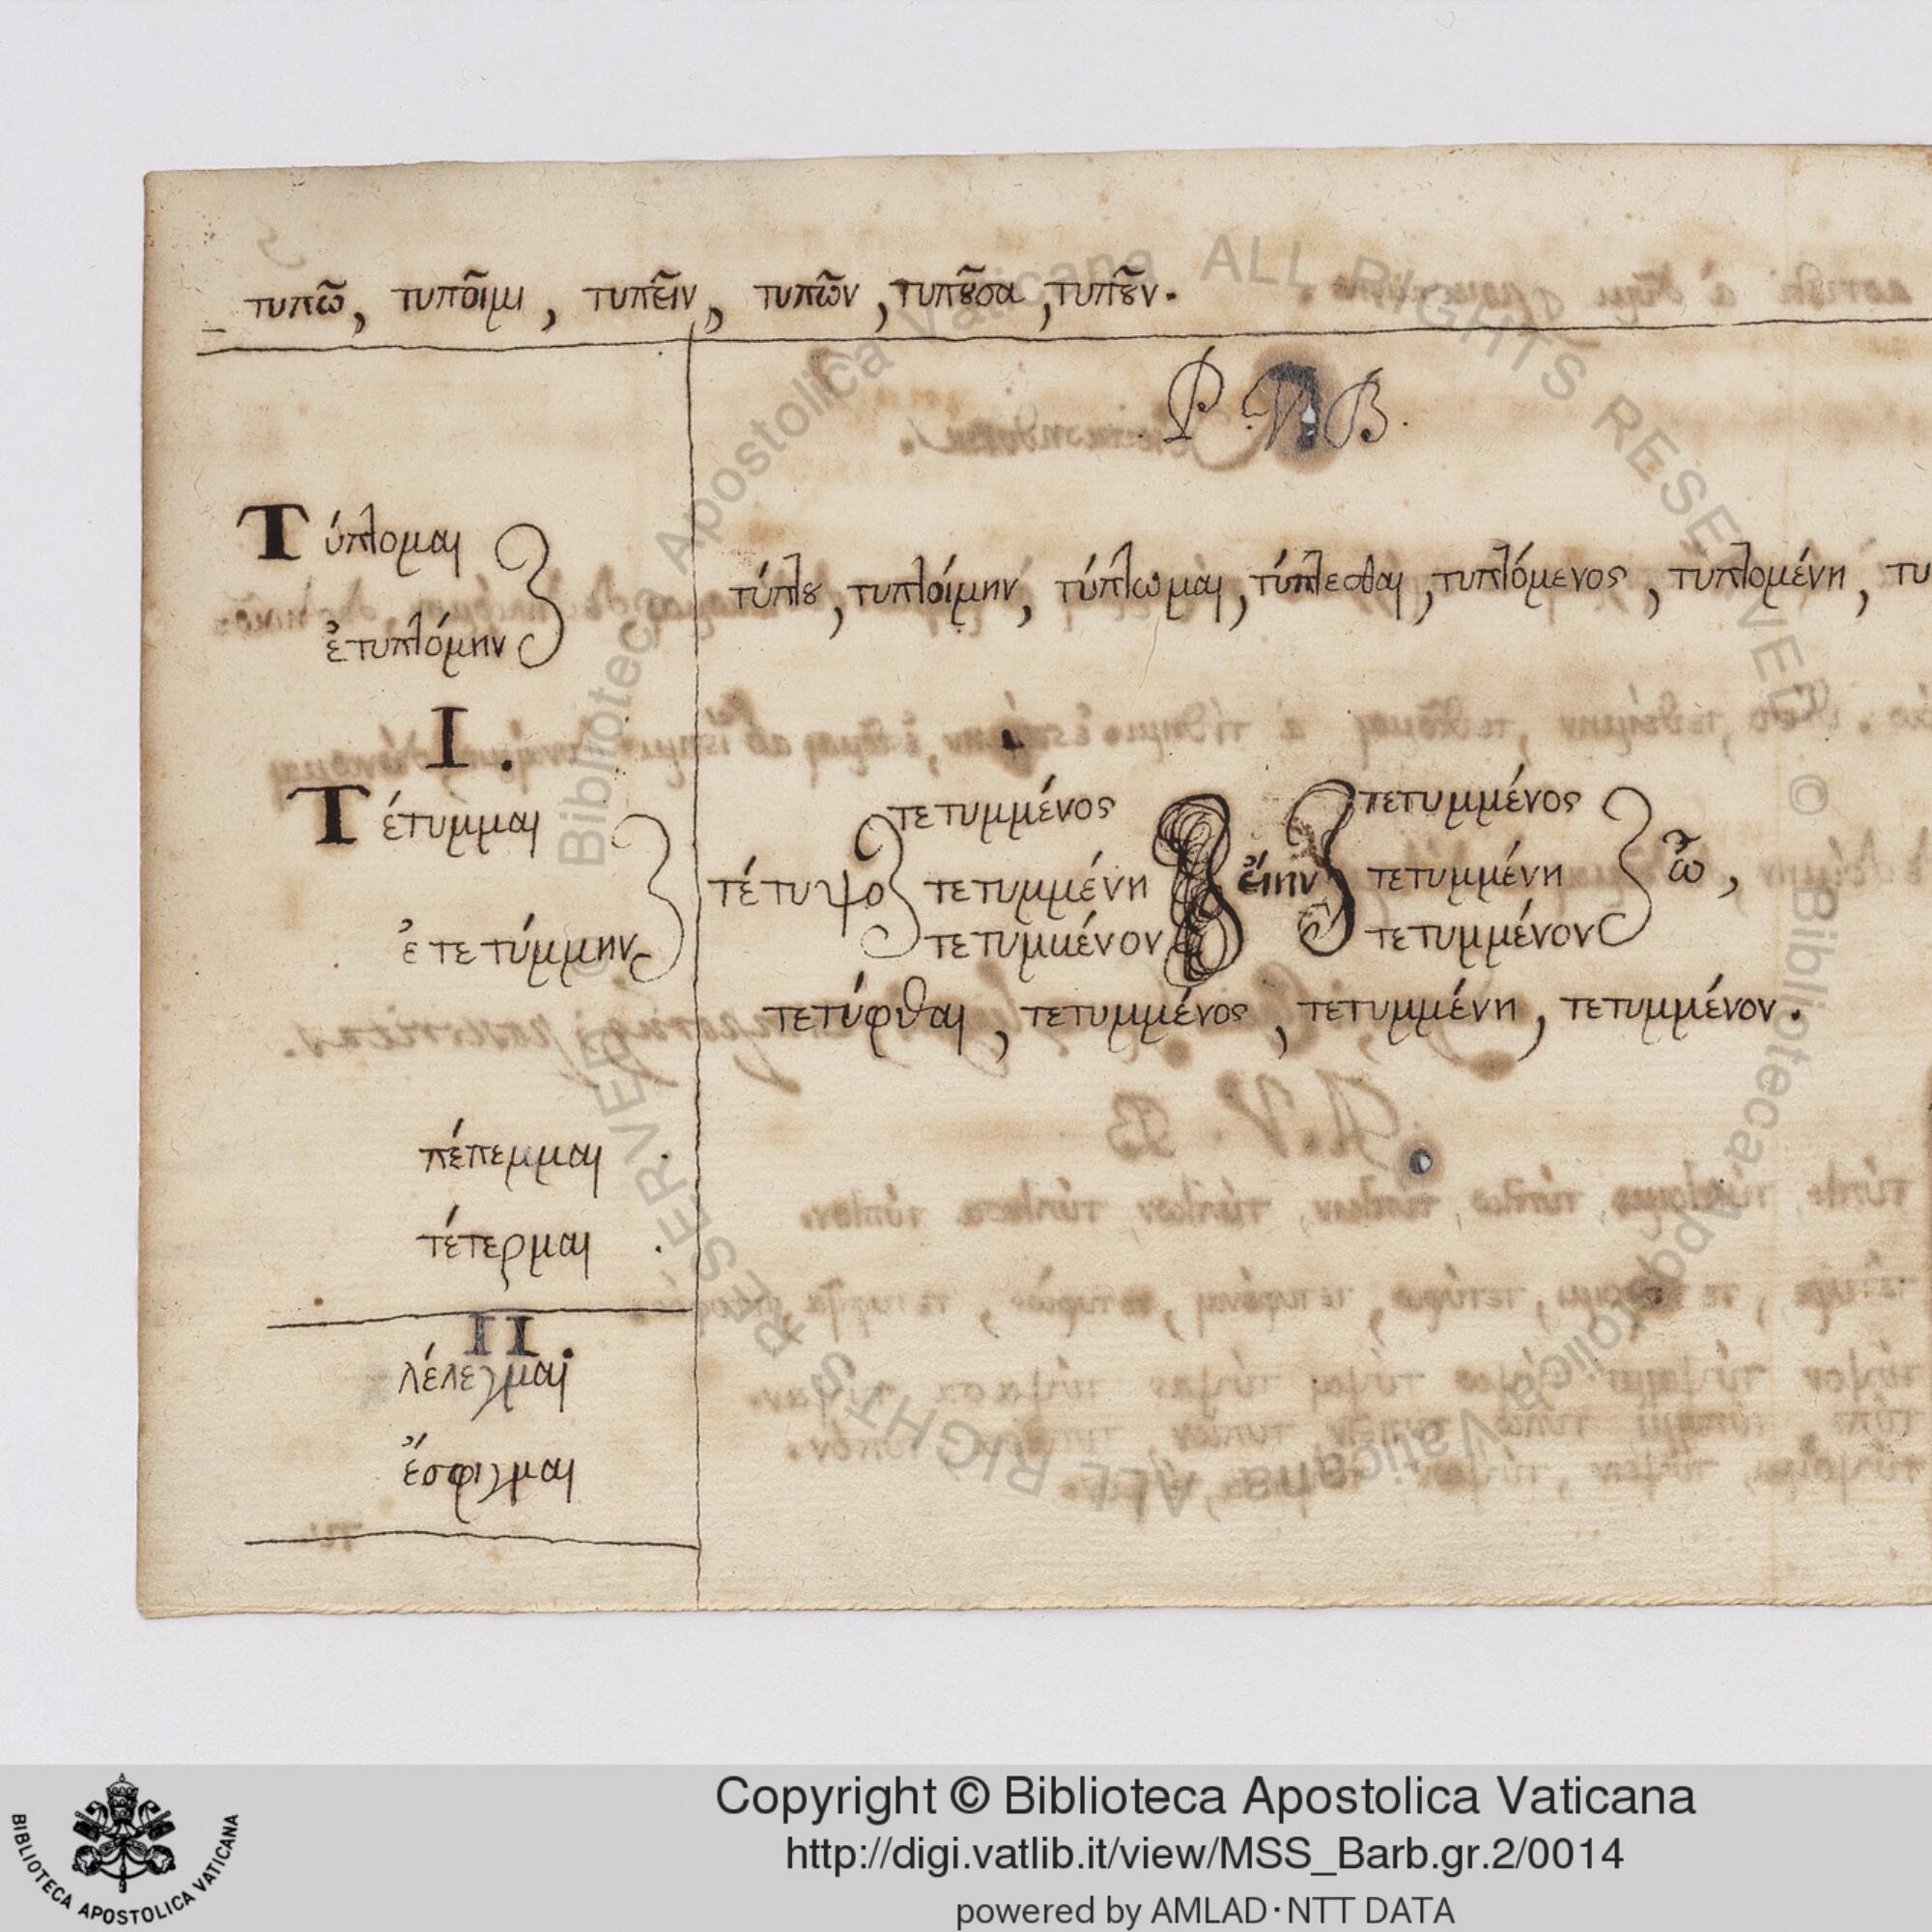 τυπῶ, τυποῖμι, τυπεῖν, τυπῶν, τυπȣ͂σα, τυπȣ͂ν.
Τύπτομαι
ἐτυπτόμην
τύπτȣ, τυπτοίμην, τύπτωμαι, τύπτεσθαι, τυπτόμενος, τυπτομένη, τυ
I.
Τέτυμμαι
ἐτετύμμην
τέτυψο
τετυμμένος
τετυμμένη
τετυμμένον
εἴην
τετυμμένος
τετυμμένη
τετυμμένον
ὦ,
τετύφθαι, τετυμμένος, τετυμμένη, τετυμμένον.
πέπεμμαι
τέτερμαι
II.
λέλεγμαι
ἔσφιγμαι
Copyright © Biblioteca Apostolica Vaticana
http://digi.vatlib.it/view/MSS_Barb.gr.2/0014
powered by AMLAD·NTT DATA
BIBLIOTECA APOSTOLICA VATICANA
Biblioteca Apostolica Vaticana ALL RIGHTS RESERVED © Biblioteca Apostolica Vaticana ALL RIGHTS RESERVED ©